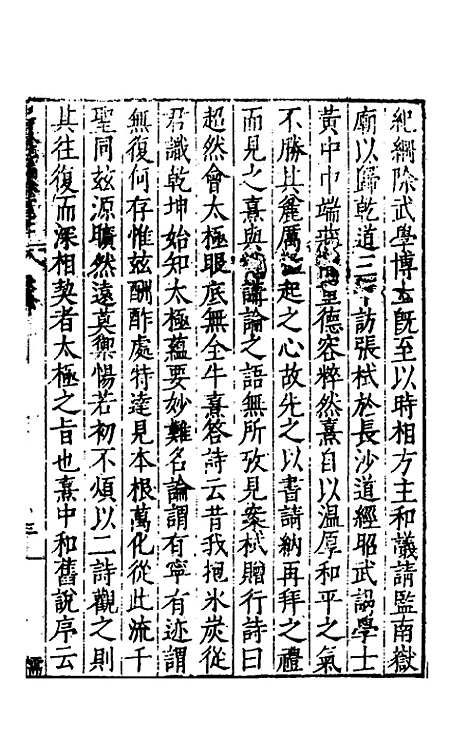 紀綱除武學博士旣至以時相方主和議請監南嶽
廟以歸乾道三年訪張栻於長沙道經昭武謁學士
黃中中端莊　　至德容粹然熹自以温厚和平之氣
不勝其麄厲　起之心故先之以書請納再拜之禮
而見之熹與　講論之語無所攷見案栻贈行詩曰
超然會太極眼底無全牛熹答詩云昔我抱氷炭從
君識乾坤始知太極蘊要妙難名論謂有寧有迹謂
無復何存惟玆酬酢處特達見本根萬化從此流千
聖同玆源曠然遠莫禦惕若初不煩以二詩觀之則
其往復而深相契者太極之旨也熹中和舊說序云